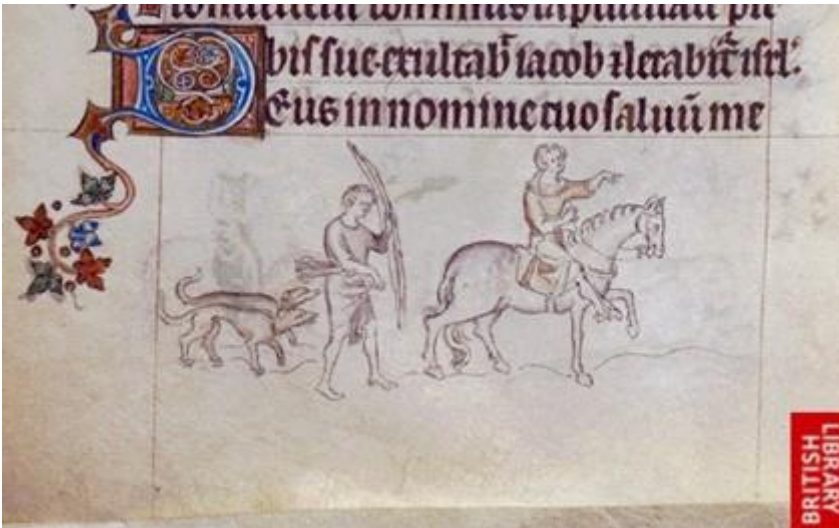 bis sue·exultab̄ iacob ⁊ letabit̄ isrl̄:
Deus in nomine tuo saluū me
BRITISH
LIBRARY